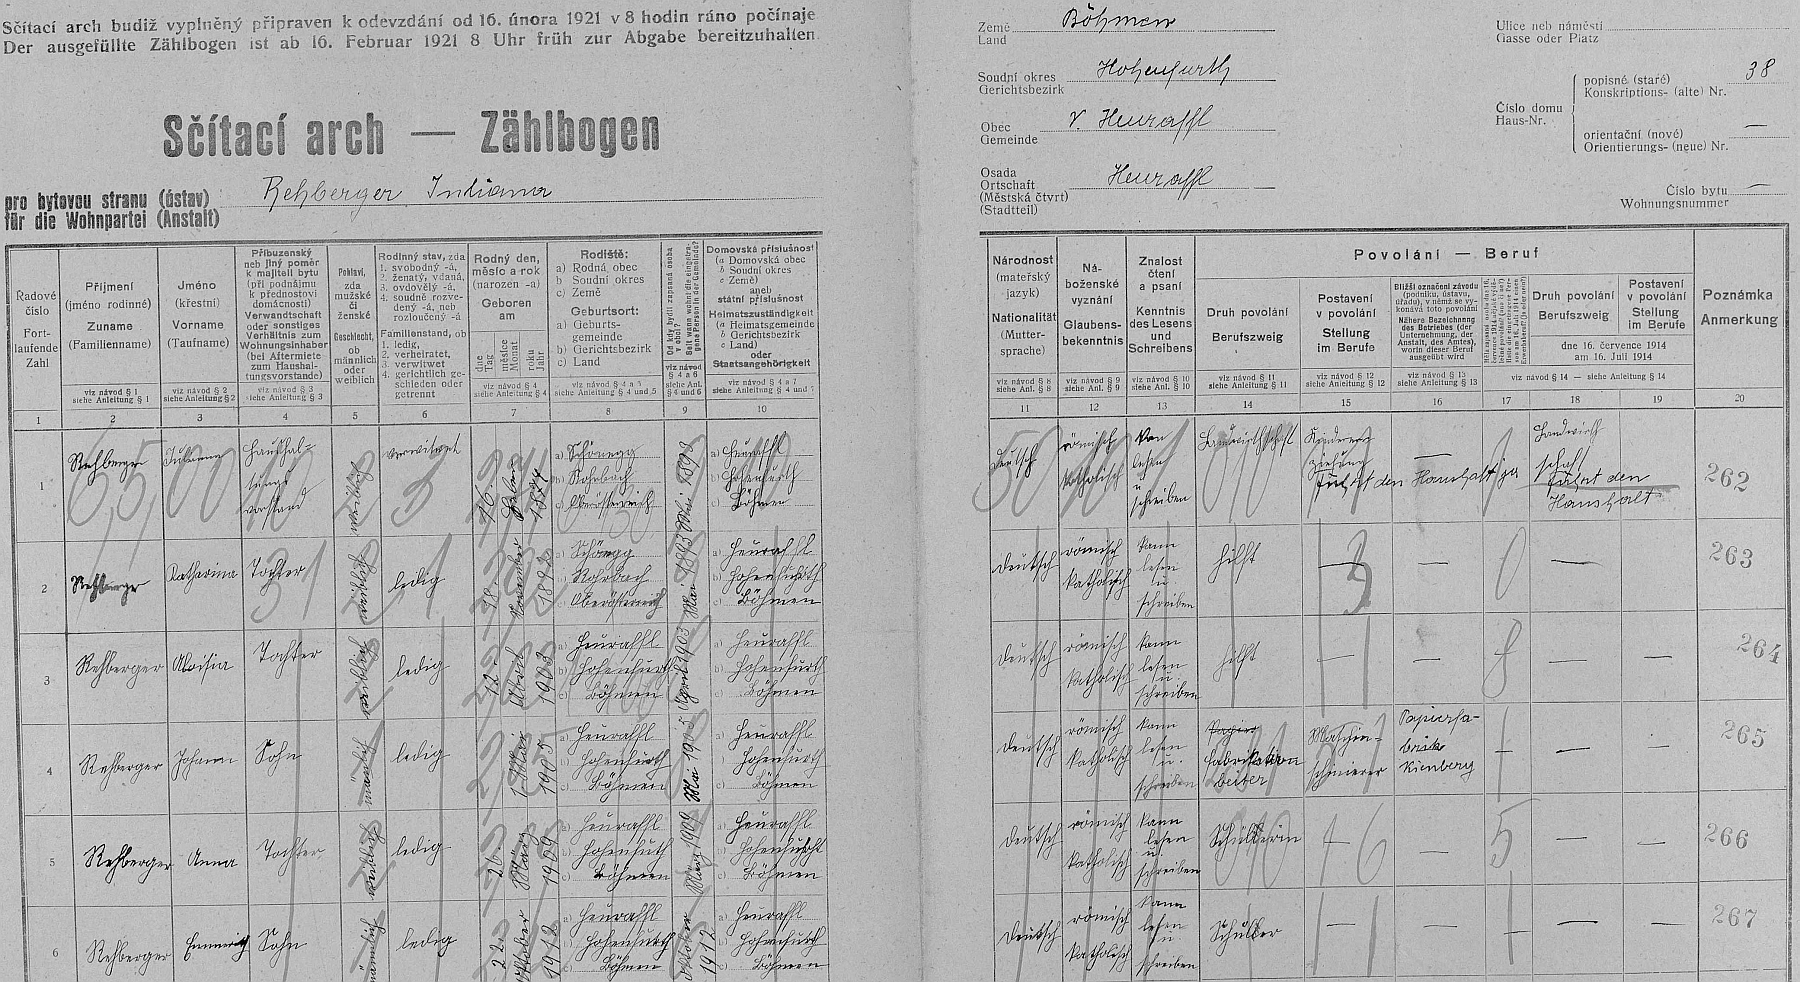 Sčítací arch budiž vyplněný připraven k odevzdání od 16. února 1921 v 8 hodin ráno počínaje
Der ausgefüllte Zählbogen ist ab 16. Februar 1921 8 Uhr früh zur Abgabe bereitzuhalten.
Sčítací arch — Zählbogen
pro bytovou stranu (ústav)
für die Wohnpartei (Anstalt)
Rehberger Juliana
Země
Land
Böhmen
Soudní okres
Gerichtsbezirk
Hohenfurth
Obec
Gemeinde
V. Heuraffl
Osada
Ortschaft
(Městská čtvrt)
(Stadtteil)
Heuraffl
Ulice neb náměstí
Gasse oder Platz
Číslo domu
Haus-Nr.
popisné (staré)
Konskriptions- (alte) Nr.
38
orientační (nové)
Orientierungs- (neue) Nr.
—
Číslo bytu
Wohnungsnummer
—
Řadové
číslo
Fort-
laufende
Zahl
Příjmení
(jméno rodinné)
Zuname
(Familienname)
viz návod § 1
siehe Anleitung § 1
Jméno
(křestní)
Vorname
(Taufname)
viz návod § 2
siehe Anleitung § 2
Příbuzenský
neb jiný poměr
k majiteli bytu
(při podnájmu
k přednostovi
domácnosti)
Verwandtschaft
oder sonstiges
Verhältnis zum
Wohnungsinhaber
(bei Aftermiete
zum Haushal-
tungsvorstande)
viz návod § 3
siehe Anleitung § 3
Pohlaví,
zda
mužské
či
ženské
Geschlecht,
ob
männlich
oder
weiblich
Rodinný stav, zda
1. svobodný -á,
2. ženatý, vdaná,
3. ovdovělý -á,
4. soudně rozve-
dený -á, neb
rozloučený -á
Familienstand, ob
1. ledig,
2. verheiratet,
3. verwitwet
4. gerichtlich ge-
schieden oder
getrennt
Rodný den,
měsíc a rok
(narozen -a)
Geboren
am
dne
Tag
měsíce
Monat
roku
Jahr
viz návod § 4
siehe Anleitung § 4
Rodiště:
a) Rodná obec
b) Soudní okres
c) Země
Geburtsort:
a) Geburts-
gemeinde
b) Gerichtsbezirk
c) Land
viz návod § 4 a 5
siehe Anleitung § 4 und 5
Od kdy bydlí zapsaná osoba
v obci?
Seit wann wohnt die eingetra-
gene Person in der Gemeinde?
viz návod
§ 4 a 6
siehe Anl.
§ 4 und 6
Domovská příslušnost
(a Domovská obec
b Soudní okres
c Země)
aneb
státní příslušnost
Heimatszuständigkeit
(a Heimatsgemeinde
b Gerichtsbezirk
c Land)
oder
Staatsangehörigkeit
viz návod § 4 a 7
siehe Anleitung § 4 und 7
Národnost
(mateřský
jazyk)
Nationalität
(Mutter-
sprache)
viz návod § 8
siehe Anl. § 8
Ná-
boženské
vyznání
Glaubens-
bekenntnis
viz návod § 9
siehe Anl. § 9
Znalost
čtení
a psaní
Kenntnis
des Lesens
und
Schreibens
viz návod § 10
siehe Anl. § 10
Povolání — Beruf
Druh povolání
Berufszweig
viz návod § 11
siehe Anleitung § 11
Postavení
v povolání
Stellung
im Berufe
viz návod § 12
siehe Anleitung § 12
Bližší označení závodu
(podniku, ústavu,
úřadu), v němž se vy-
konává toto povolání
Nähere Bezeichnung
des Betriebes (der
Unternehmung, der
Anstalt, des Amtes),
worin dieser Beruf
ausgeübt wird
viz návod § 13
siehe Anleitung § 13
Druh povolání
Berufszweig
Postavení
v povolání
Stellung
im Berufe
dne 16. července 1914
am 16. Juli 1914
viz návod § 14 — siehe Anleitung § 14
Poznámka
Anmerkung
1 2 3 4 5 6 7 8 9 10 11 12 13 14 15 16 17 18 19 20
1 Rehberger Juliana Haushal-
tungs
vorstand
weiblich verwitwet 16. 1874
a) Schönegg
b) Rohrbach
c) Oberösterreich
Mai 1893
a) Heuraffl
b) Hohenfurth
c) Böhmen
deutsch römisch
katholisch
kann
lesen
u
schreiben
Landwirthschaft
—
Führt den Haushalt
Landwirth
schaft
Führt den
Haushalt
262
2 Rehberger Katharina Tochter weiblich ledig 18. November 1892
a)
b) Rohrbach
c) Oberösterreich
Mai 1893
a) Heuraffl
b) Hohenfurth
c) Böhmen
deutsch römisch
katholisch
kann
lesen
u
schreiben
hilft — 3 — —
263
3 Rehberger Aloisia Tochter weiblich ledig 12. April 1903
a) Heuraffl
b) Hohenfurth
c) Böhmen
April 1903
a) Heuraffl
b) Hohenfurth
c) Böhmen
deutsch römisch
katholisch
kann
lesen
u.
schreiben
hilft — — 8 — —
264
4 Rehberger Johann Sohn männlich ledig 1 Mai 1905
a) Heuraffl
b) Hohenfurth
c) Böhmen
Mai 1905
a) Heuraffl
b) Hohenfurth
c) Böhmen
deutsch römisch
katholisch
kann
lesen
u.
schreiben
Papier
fabrikation
beiter
Maschin-
schmierer
Papierfa-
brik
Kienberg
— — —
265
5 Rehberger Anna Tochter weiblich ledig 26. März 1909
a) Heuraffl
b) Hohenfurth
c) Böhmen
März 1909
a) Heuraffl
b) Hohenfurth
c) Böhmen
deutsch römisch
katholisch
kann
lesen
u.
schreiben
Schülerin — 6 — 5 — —
266
6 Rehberger Emmerich Sohn männlich ledig 22. Oktober 1912
a) Heuraffl
b) Hohenfurth
c) Böhmen
Oktober 1912
a) Heuraffl
b) Hohenfurth
c) Böhmen
deutsch römisch
katholisch
kann
lesen
u.
schreiben
Schüler — — — — —
267